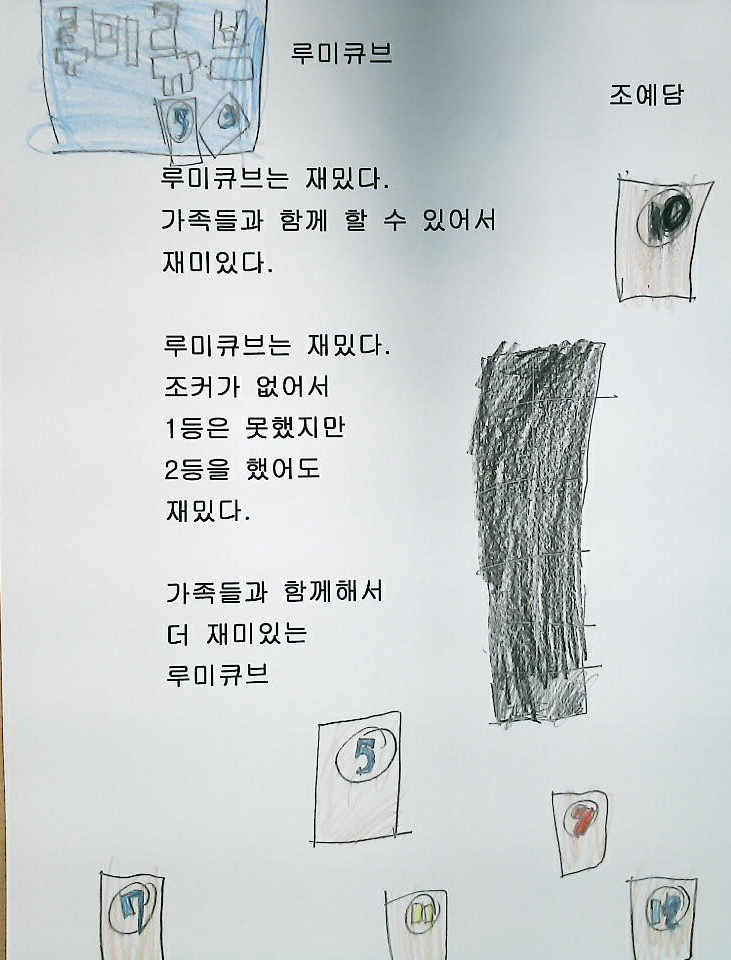 루미큐브
루미큐브
조예담
루미큐브는 재밌다.
가족들과 함께 할 수 있어서
재미있다.
루미큐브는 재밌다.
조커가 없어서
1등은 못했지만
2등을 했어도
재밌다.
가족들과 함께해서
더 재미있는
루미큐브
10
5
7
7
11
12